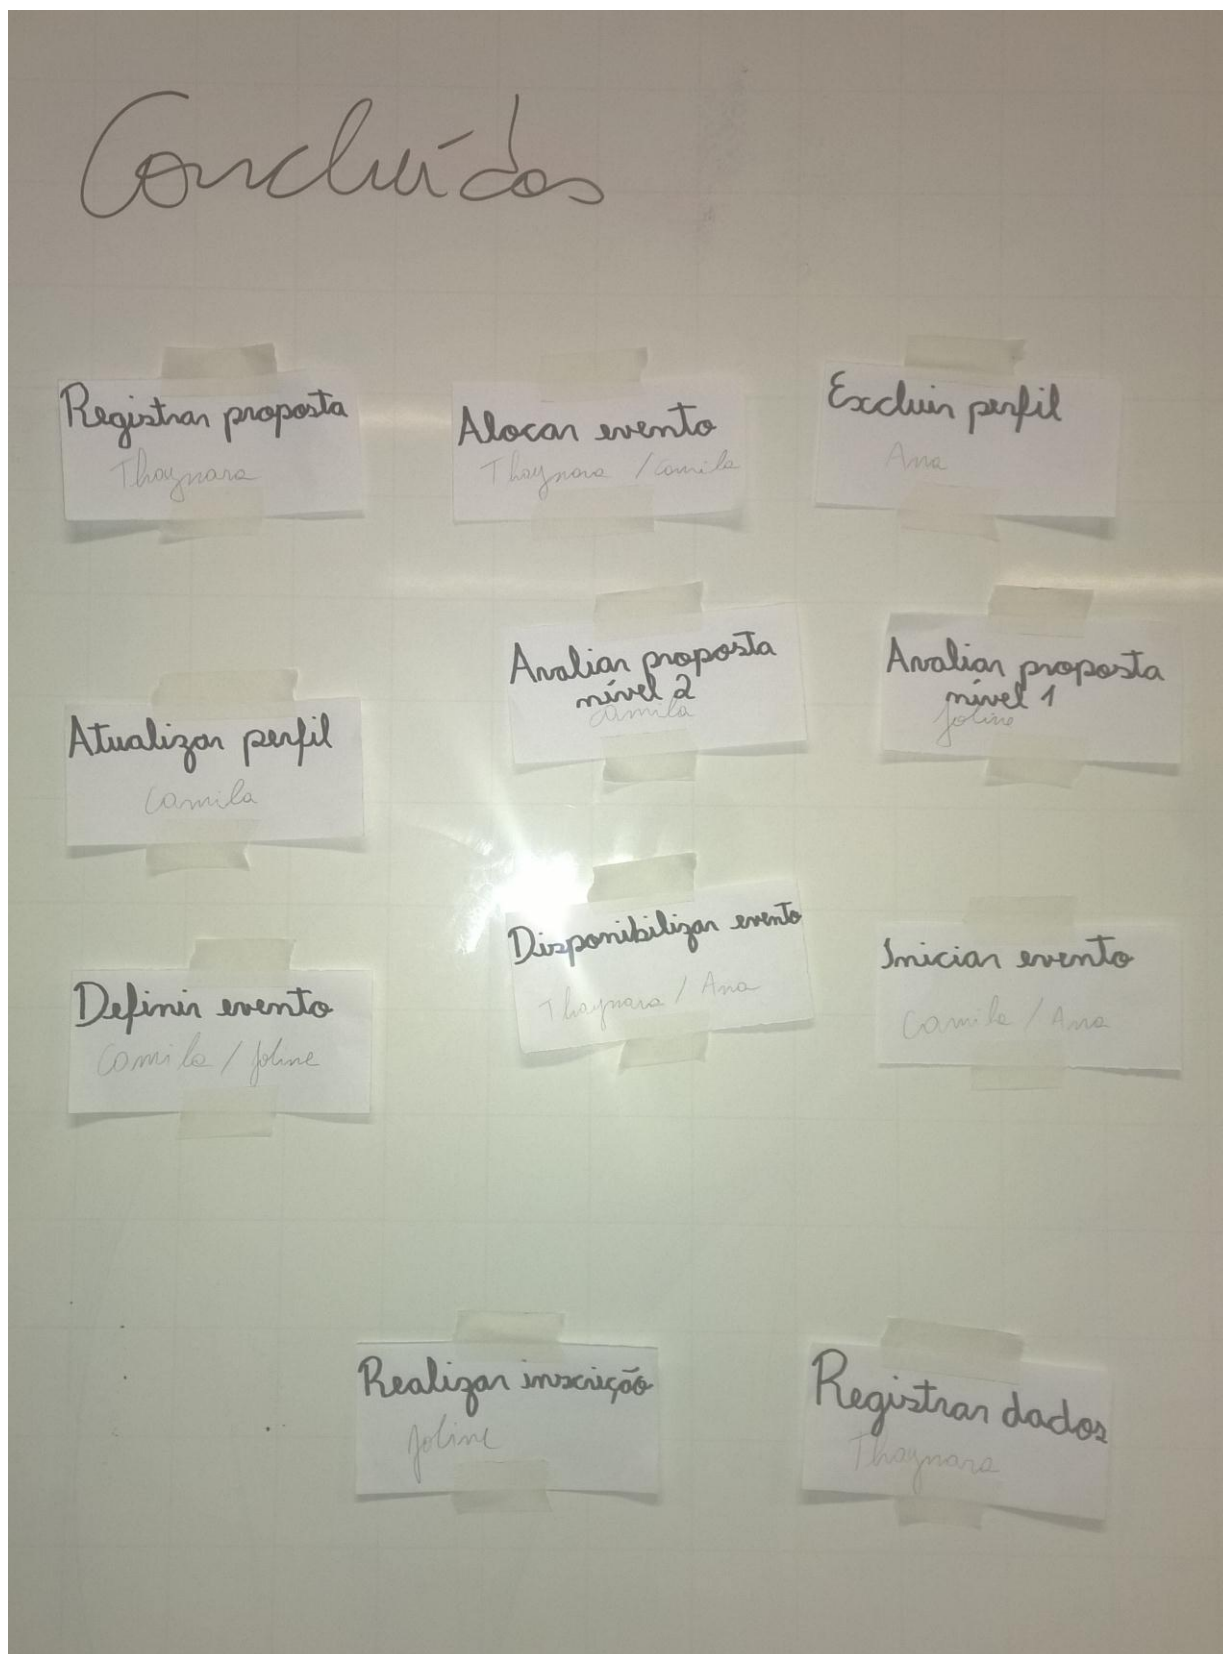 Concluídos
Registrar proposta
Thaynara
Alocar evento
Thaynara / Camila
Excluir perfil
Ana
Avaliar proposta
nível 2
Camila
Avaliar proposta
nível 1
Joline
Atualizar perfil
Camila
Disponibilizar evento
Thaynara / Ana
Iniciar evento
Camila / Ana
Definir evento
Camila / Joline
Realizar inscrição
Joline
Registrar dados
Thaynara